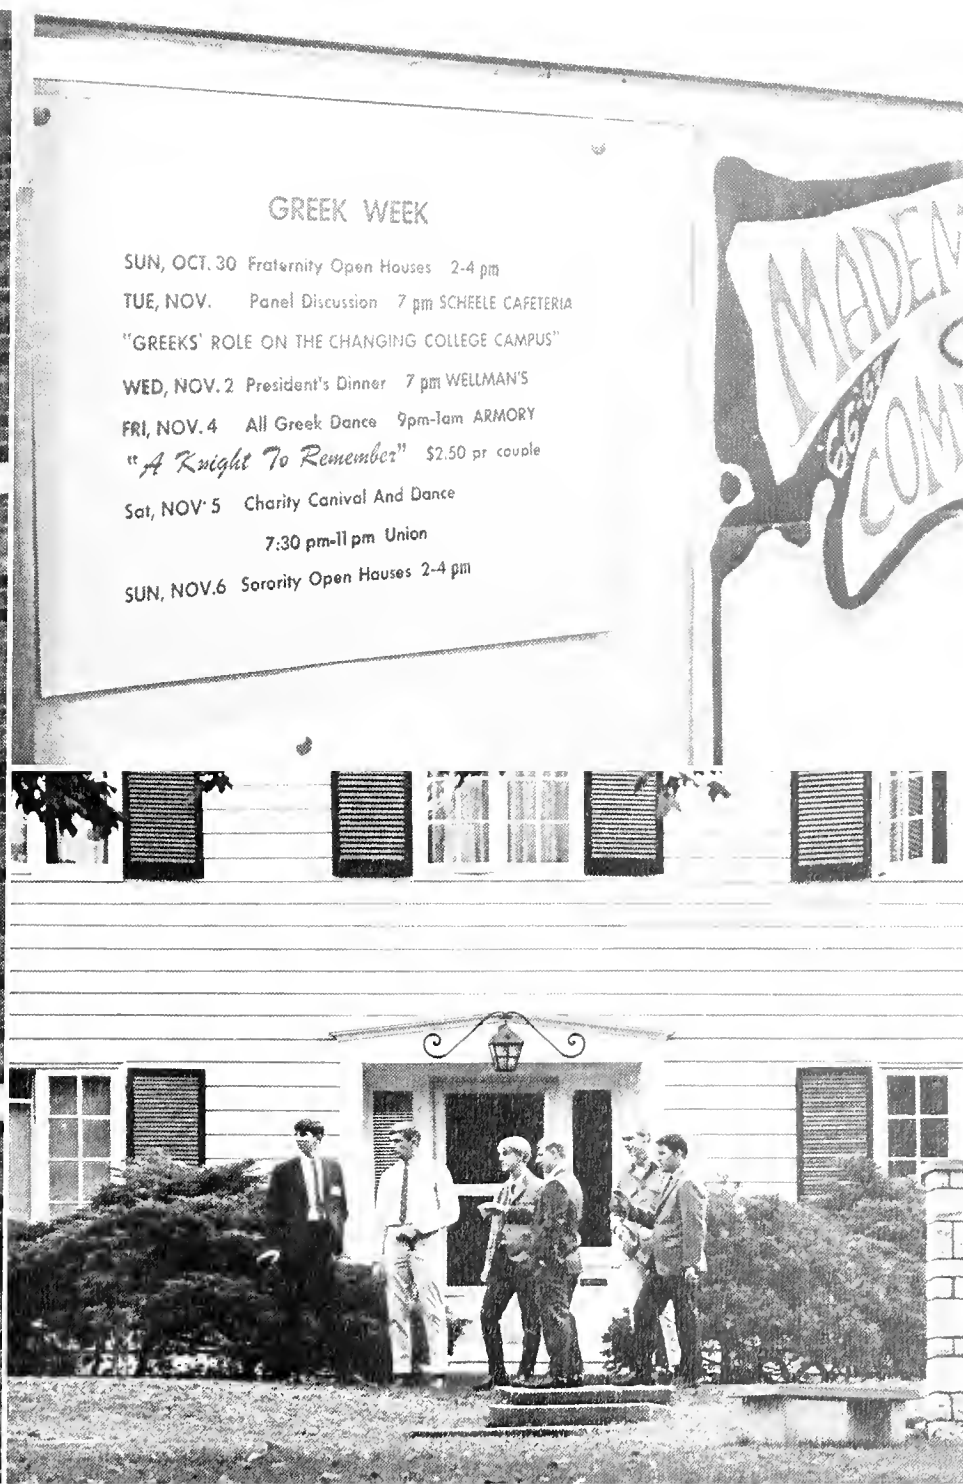 GREEK WEEK
SUN, OCT. 30 Fraternity Open Houses 2-4 pm
TUE, NOV. Panel Discussion 7 pm SCHEELE CAFETERIA
"GREEKS' ROLE ON THE CHANGING COLLEGE CAMPUS"
WED, NOV. 2 President's Dinner 7 pm WELLMAN'S
FRI, NOV. 4 All Greek Dance 9pm-1am ARMORY
"A Knight To Remember" $2.50 pr couple
Sat, NOV· 5 Charity Canival And Dance
7:30 pm-11 pm Union
SUN, NOV.6 Sorority Open Houses 2-4 pm
MADEM
66-67
COM